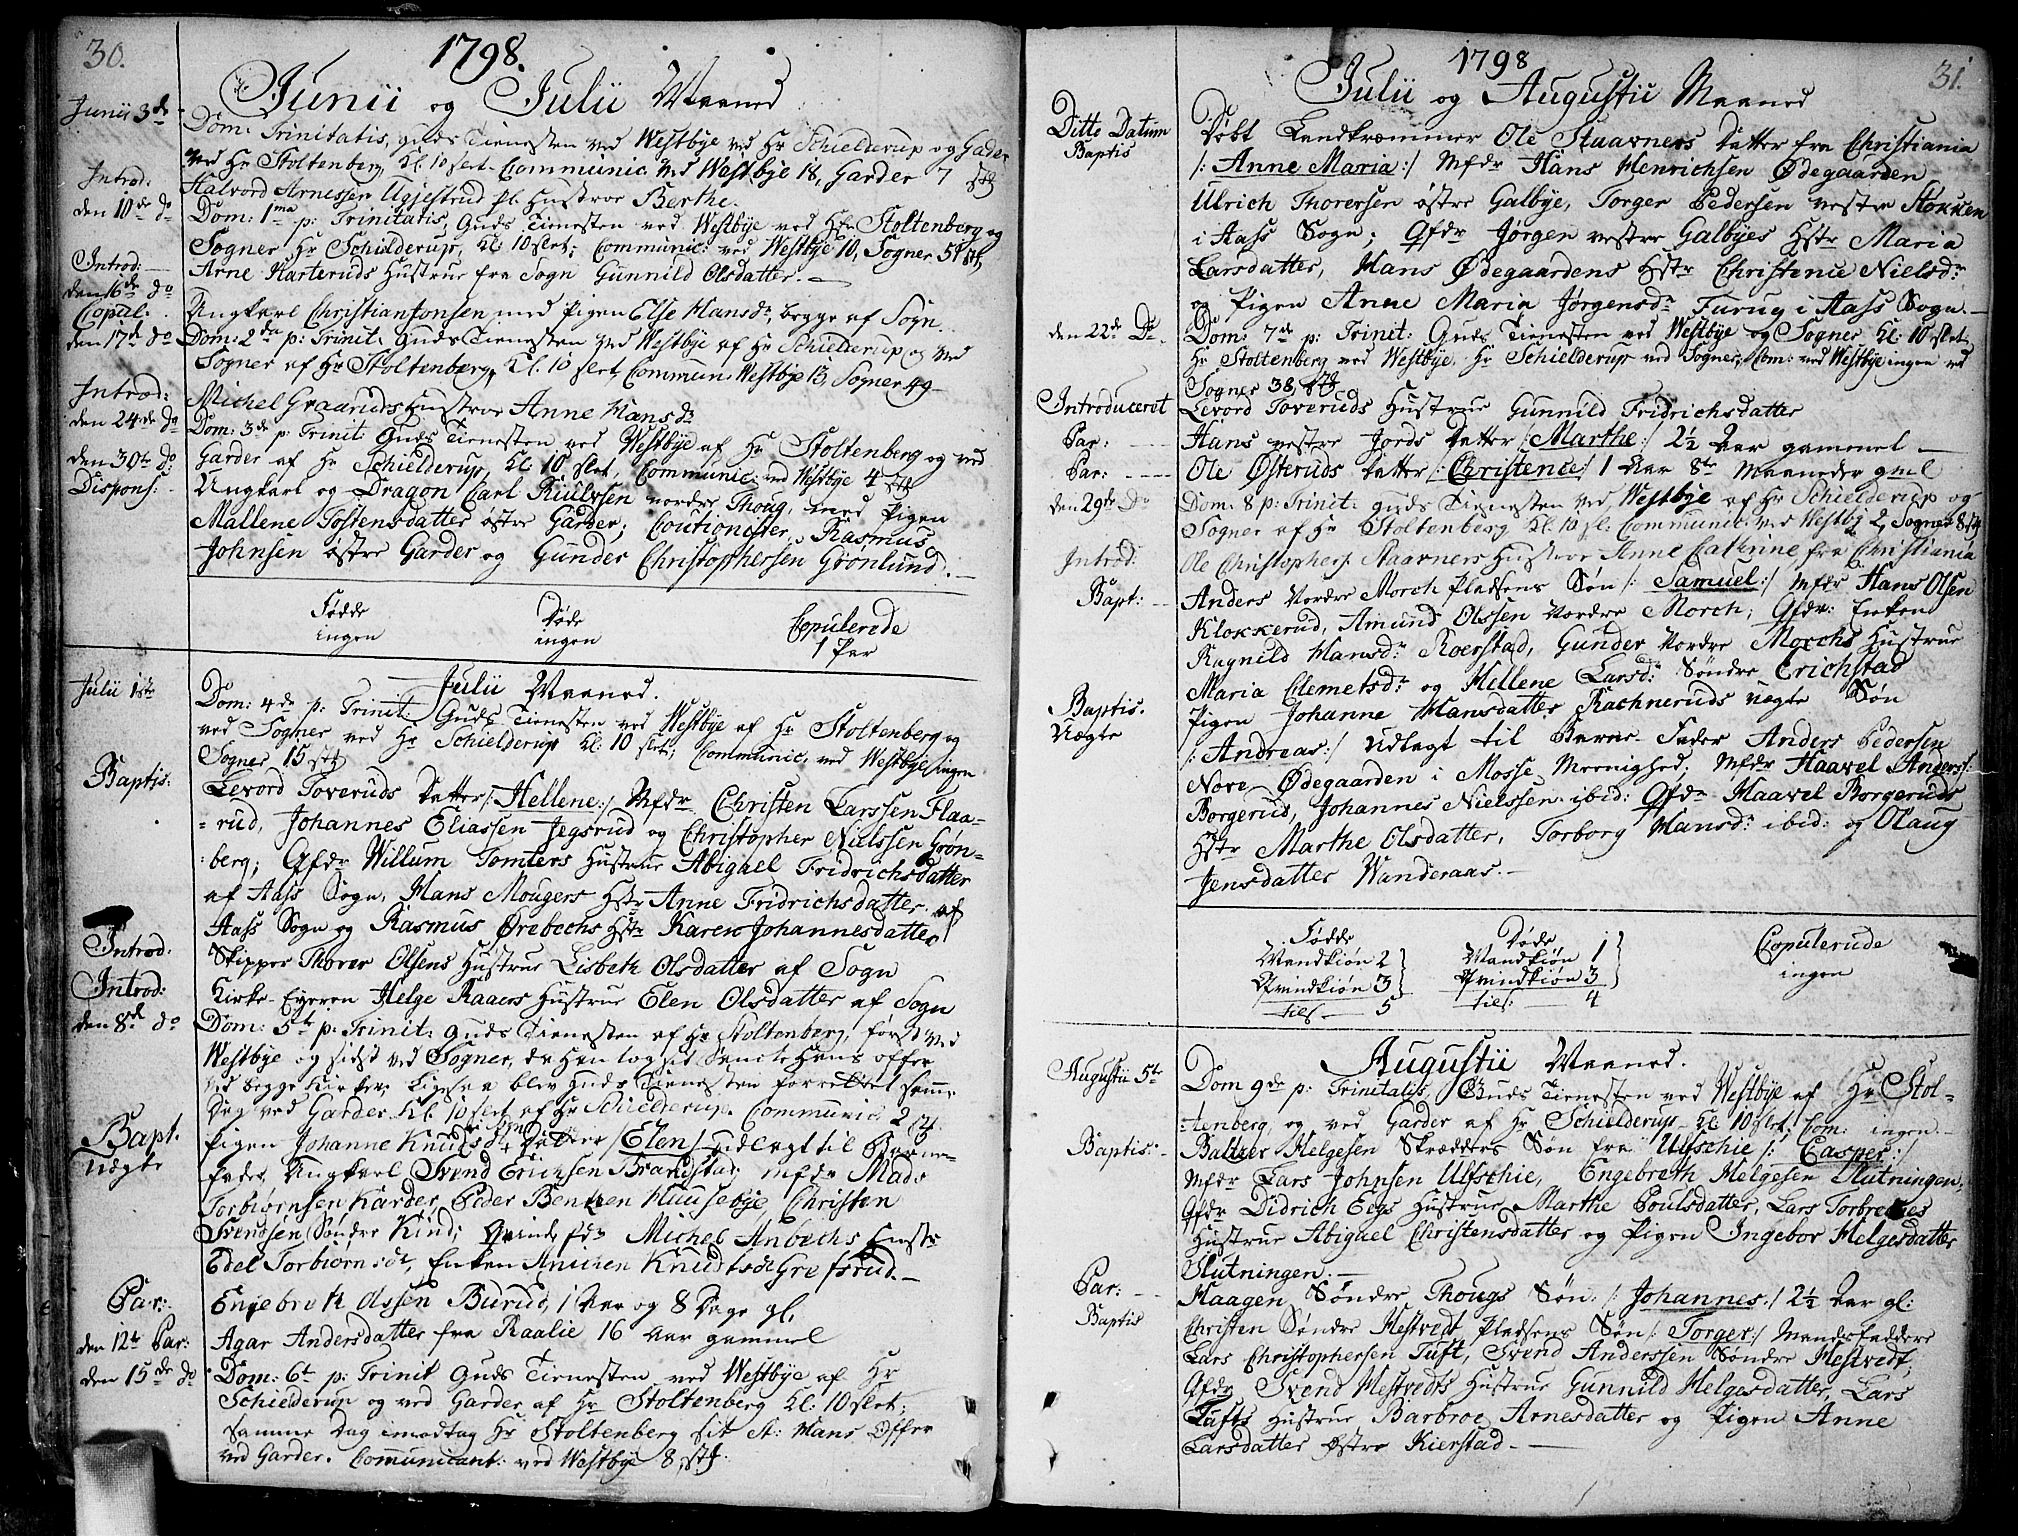 30.
1798.
Junii og Julii Maaned
Junii 3de
Dom: Trinitatis, Guds Tienesten ved Westbye ved Hr Schielderup og Garder
ved Hr Stoltenberg Kl. 10 slet. Communic. ved Westbye 18, Garder 7 stk
Introd:
Halvord Arnessen Ugjestrud pl. Hustroe Berthe.
den 10de do
Dom: 1ma p: Trinitatis, Guds Tienesten ved Westbye ved Hr Stoltenberg og
Sogner Hr Schielderup, Kl: 10 slet; Communic: ved Westbye 10, Sogner 51 stk,
Introd:
Arne Harteruds Hustrue fra Sogn Gunnild Olsdatter. —
den 16de do
Copul:
Ungkarl Christian Jonsen med Pigen Else Hansdr, begge af Sogn.
den 17de do
Dom: 2da p: Trinit: Guds Tienesten ved Westbye af Hr Schielderup og ved
Sogner af Hr Stoltenberg, Kl. 10 slet, Commun: Westbye 13, Sogner 49
Introd:
Michel Graanuds Hustroe Anne Hansdr
den 24de do
Dom: 3de p: Trinit: Guds Tienesten ved Westbye af Hr Stoltenberg og ved
Garder af Hr Schielderup, Kl. 10 slet, Communic: ved Westbye 4 stk
den 30te do:
Dispons:
Ungkarl og Dragon Carl Kiulssen nordre Thoug, med Pigen
Mallene Tostensdatter østre Garder; Coutionister, Rasmus
Johnsen østre Garder og Gunder Christophersen Grønlund. —
Fødde Døde Copulerede
ingen ingen 1 Par
Julii Maaned.
Julii 1ste
Dom: 4de p: Trinit: Guds Tienesten ved Westbye af Hr Stoltenberg og
ved Sogner ved Hr Schielderup Kl: 10 slet; Communic, ved Westbye ingen
Sogner 15 stk
Baptis:
Levord Toveruds Datter /: Hellene :/ Mfdr Christen Larssen Flaa-
-rud, Johannes Eliassen Jegsrud og Christopher Nielssen Grøn-
:berg; Qfdr Willum Tomters Hustrue Abigael Fridrichsdatter
af Aass Sogn, Hans Mougers Hstr Anne Fridrichsdatter af
Aass Sogn og Rasmus Ørebechs Hstr Karen Johannesdatter
Introd:
Skipper Thorer Olsens Hustrue Lisbeth Olsdatter af Sogn
Introd:
Kirke-Eyeren Helge Raaers Hustrue Elen Olsdatter af Sogn
den 8de do
Dom: 5te p: Trinit: Guds Tienesten af Hr Stoltenberg, først ved
Westbye og sidst ved Sogner, da han tog sit Sancte Hans offer
ved begge Kirker. Ligesaa blev Guds Tienesten forrettet samme
Dag ved Garder Kl. 10 slet af Hr Schielderup. Communic: 2 stk
Bapt.
Uægte
Pigen Johanne Knudsdr Datter / Elen / udlagt til Barne-
fader Ungkarl Svend Ericksen Brandstad; Mfdr Mads
Torbiørnsen Karder, Peder Bentzen Huusebye, Christen
Svendsen Søndre Kind; Qvindefdr Michel Anbechs Hustr
Edel Torbiørnsdt, Enken Anichen Knudtsdt Grefsrud. —
Par:
Engebreth Assen Burud, 1 Aar og 8 Dage gl.
den 12te Par:
Agar Andersdatter fra Raalie 16 Aar gammel
den 15de do
Dom: 6te p: Trinit Guds Tienesten ved Westbye af Hr
Schielderup og ved Garder af Hr Stoltenberg Kl: 10 slet;
Samme Dag imodtag Hr Stoltenberg sit St: Hans Offer
ved Garder. Comunicant: ved Westbye 8 stk.
31.
1798
Julii og Augustii Maaned
Ditte Datum
Baptis
Døbt Landkræmmer Ole Staavners Datter fra Christiania
/: Anne Maria :/ Mfdr Hans Henrichsen Ødegaarden
Ulrich Thorersen østre Galbye, Torger Pedersen vestre Støkken
i Aass Sogn; Qfdr Jørgen vestre Galbyes Hstr Maria
Larsdatter, Hans Ødegaardens Hstr Christence Nielsdr
og Pigen Anne Maria Jørgensdr Furug i Aass Sogn. —
den 22de Do.
Dom: 7de p: Trinit: Guds Tienesten ved Westbye og Sogner Kl: 10 slet.
Hr Stoltenberg ved Westbye, Hr Schielderup ved Sogner, Com: ved Westbye ingen ved
Sogner 38 stk
Introduceret
Levord Toveruds Hustrue Gunnild Fridrichsdatter
Par:
Hans vestre Jords Datter /: Marthe :/ 2½ Aar gammel —
Par:
Ole Østeruds Datter /: Christence :/ 1 Aar 8te Maaneder gml
den 29de Do
Dom: 8 p: Trinit: Guds Tienesten ved Westbye af Hr Schielderup og
Sogner af Hr Stoltenberg Kl: 10 sl. Communic: ved Westby 2, Sogner 8 stk
Introd:
Ole Christophers: Staavners Hustroe Anne Cathrine fra Christiania
Bapt:
Anders Nordre Morch Pladsens Søn /: Samuel :/ Mfdr Hans Olsen
Klokkerud, Amund Olssen Nordre Morch; Qfdr: Enken
Ragnild Hansdr Roerstad, Gunder Nordre Morchs Hustrue
Maria Clemetsdr og Hellene Larsdr Søndre Erichstad
Baptis.
Uægte
Pigen Johanne Hansdatter Rachneruds uægte Søn
/: Andreas :/ Udlagt til Barne-Fader Anders Pedersen
Nore Ødegaarden i Mosse Menighed; Mfdr Haavel Anders:
Borgerud, Johannes Nielssen ibid: Qfdr Haavel Borgeruds
Hstr Marthe Olsdatter, Torborg Hansdr ibid: og Olaug
Jensdatter Wanderaas. —
Fødde Døde Copulerede
Mandkiøn 2 Mandkiøn 1 ingen
Qvindkiøn 3 Qvindkiøn 3
tils. 5 tils: 4
Augustii Maaned.
Augustii 5te
Dom 9de p: Trinitatis, Guds Tienesten ved Westbye af Hr Stol-
-tenberg, og ved Garder af Hr Schielderup Kl 10 slet, Com: ingen —
Baptis:
Baltzer Helgesen Skrædders Søn fra Ulfschie /: Casper :/
Mfdr Lars Johnsen Ulfschie, Engebreth Helgesen Slutningen,
Qfdr Didrich Eegs Hustrue Marthe Poulsdatter, Lars Torbret
Hustrue Abigael Christensdatter og Pigen Ingebor Helgesdatter
Slutningen. —
Par:
Haagen Søndre Thougs Søn /: Johannes :/ 2½ Aar gl:
Baptis
Christen Søndre Hestvedt Pladsens Søn /: Torger :/ Mandsfaddere
Lars Christophersen Tuft, Svend Anderssen Søndre Hestvedt,
Qfdr Svend Hestvedts Hustrue Gunnild Helgesdatter, Lars
Tufts Hustrue Barbroe Arnesdatter og Pigen Anne
Larsdatter Østre Kierstad. —